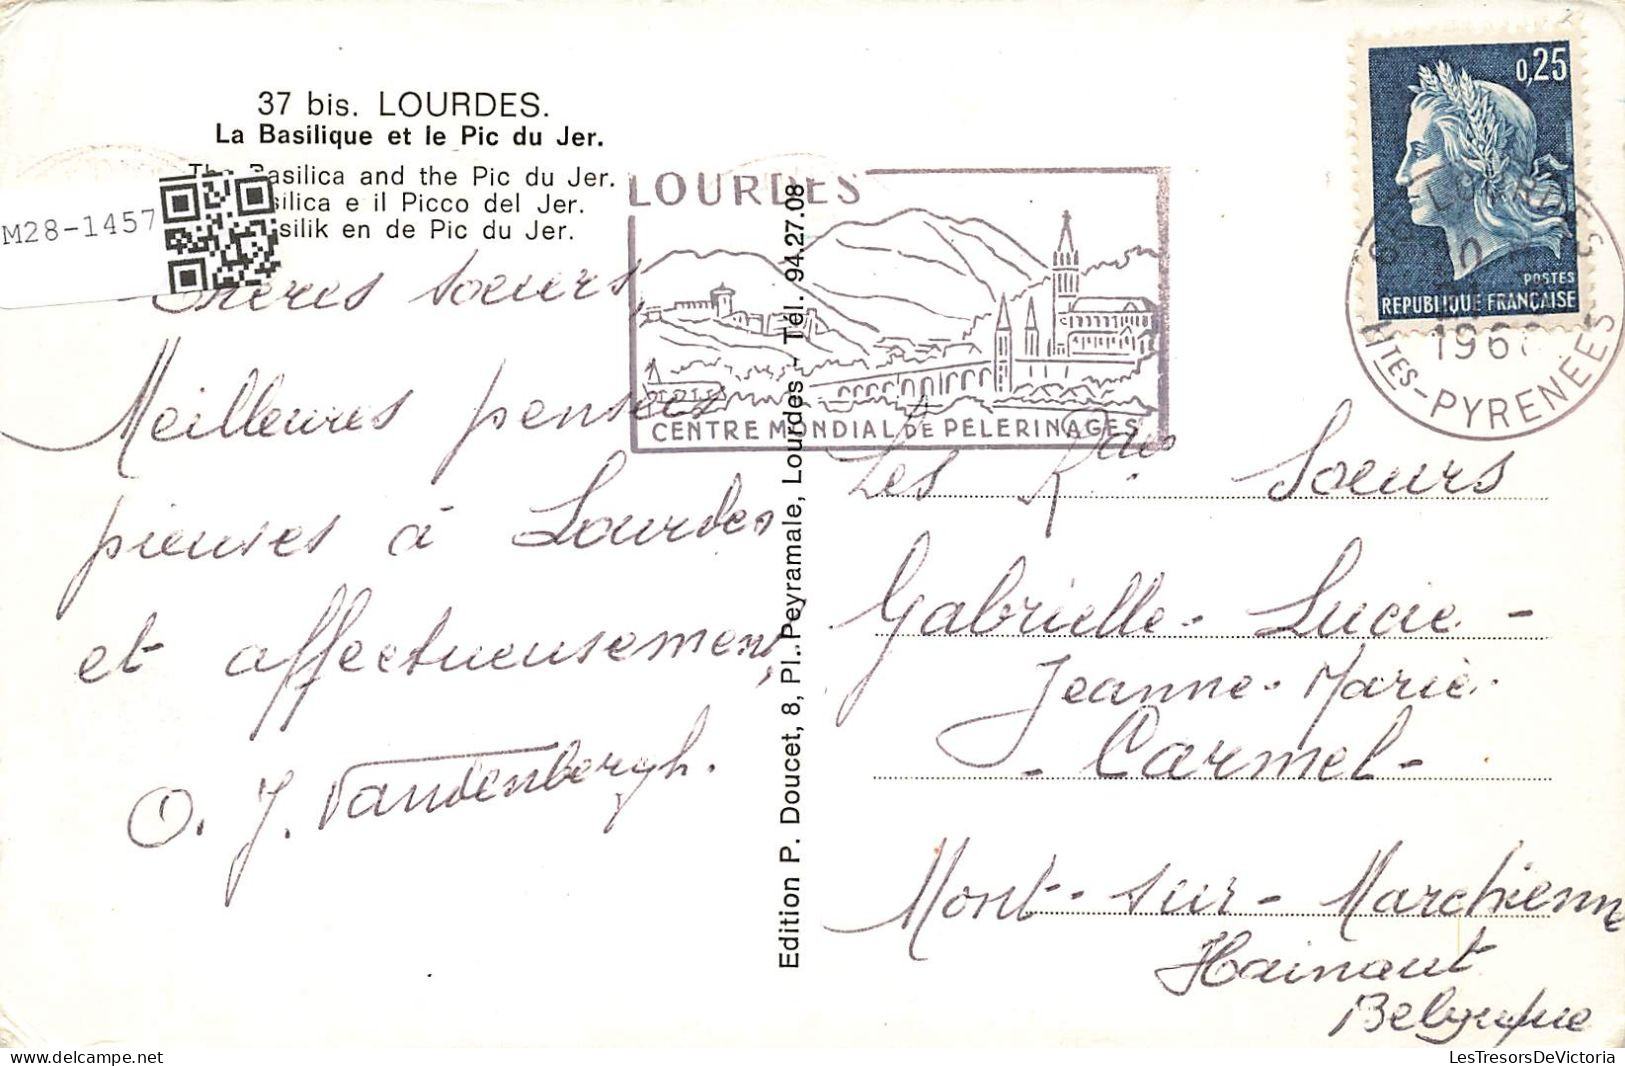 37 bis. LOURDES.
La Basilique et le Pic du Jer.
The Basilica and the Pic du Jer.
silica e il Picco del Jer.
silik en de Pic du Jer.
M28-1457
Chères Sœurs,
Meilleures pensées
pieuses à Lourdes
et affectueusement,
O. J. Vandenbergh.
Edition P. Doucet, 8, Pl. Peyramale, Lourdes - Tél. 94.27.08
LOURDES
CENTRE MONDIAL DE PELERINAGES
0,25
POSTES
REPUBLIQUE FRANÇAISE
LOURDES
196
HTES-PYRENEES
Les Sœurs
Gabrielle - Lucie -
Jeanne - Marie -
- Carmel -
Mont-sur-Marchienne
Hainaut
Belgique
LesTresorsDeVictoria